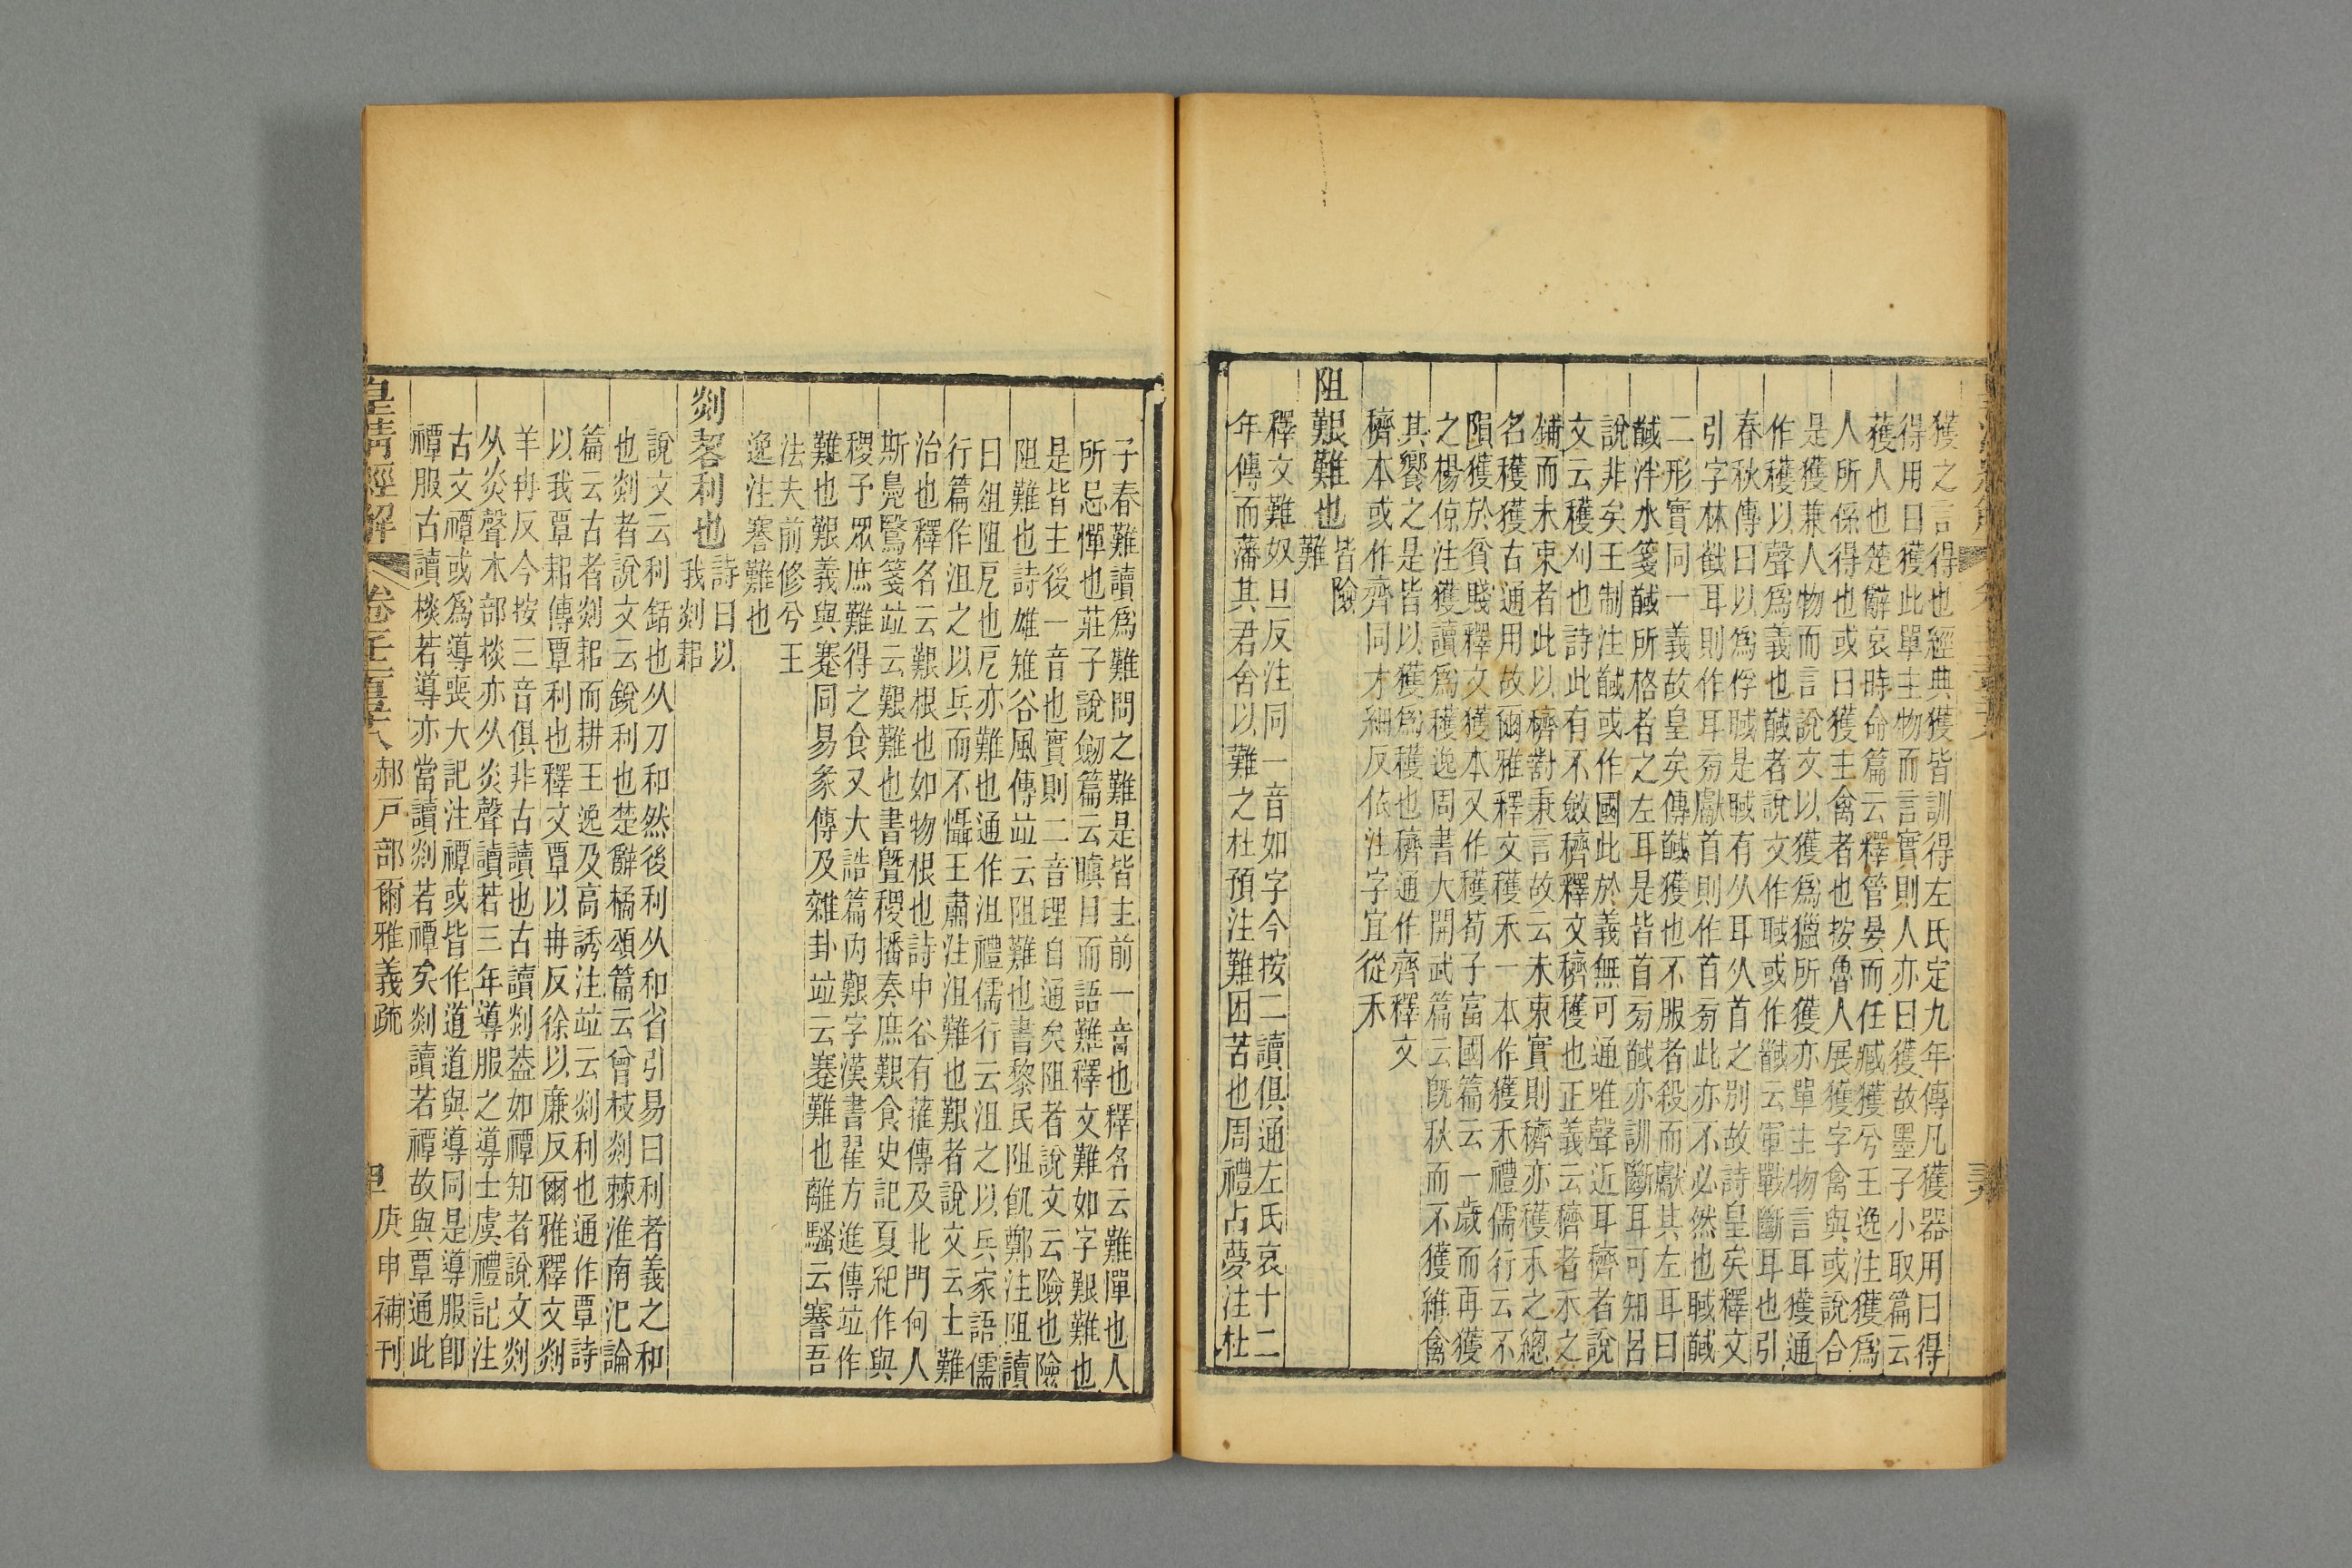 獲之言得也經典獲皆訓得左氏定九年傳凡獲器用曰得
得用曰獲此單主物而言實則人亦曰獲故墨子小取篇云
獲人也楚辭哀時命篇云釋管晏而任臧獲兮王逸注獲爲
人所係得也或曰獲主禽者也按魯人展獲字禽與或說合
是獲兼人物而言說文以獲爲獵所獲亦單主物言耳獲通
作穫以聲爲義也馘者說文作聝或作馘云軍戰斷耳也引
春秋傳曰以爲俘聝是聝有从耳从首之別故詩皇矣釋文
引字林截耳則作耳旁獻首則作首旁此亦不必然也聝馘
二形實同一義故皇矣傳馘獲也不服者殺而獻其左耳曰
馘泮水箋馘所格者之左耳是皆首旁馘亦訓斷耳可知呂
說非矣王制注馘或作國此於義無可通唯聲近耳穧者說
文云穫刈也詩此有不斂穧釋文穧穫也正義云穧者禾之
鋪而未束者此以穧對秉言故云未束實則穧亦穫禾之總
名穫獲古通用故爾雅釋文穫禾一本作獲禾禮儒行云不
隕獲於貧賤釋文獲本又作穫荀子富國篇云一歲而再獲
之楊倞注獲讀爲穫逸周書大開武篇云旣秋而不獲維禽
其饗之是皆以獲爲穫也穧通作齊釋文
穧本或作齊同才細反依注字宜從禾
阻艱難也皆險
難
釋文難奴旦反注同一音如字今按二讀俱通左氏哀十二
年傳而藩其君舍以難之杜預注難困苦也周禮占夢注杜
子春難讀爲難問之難是皆主前一音也釋名云難憚也人
所忌憚也莊子說劒篇云瞋目而語難釋文難如字艱難也
是皆主後一音也實則二音理自通矣阻者說文云險也險
阻難也詩雄雉谷風傳竝云阻難也書黎民阻飢鄭注阻讀
曰俎阻戹也戹亦難也通作沮禮儒行云沮之以兵家語儒
行篇作沮之以兵而不懾王肅注沮難也艱者說文云土難
治也釋名云艱根也如物根也詩中谷有蓷傳及北門何人
斯鳧鷖箋竝云艱難也書曁稷播奏庶艱食史記夏紀作與
稷予眾庶難得之食又大誥篇內艱字漢書翟方進傳竝作
難也艱義與蹇同易彖傳及雜卦竝云蹇難也離騷云謇吾
法夫前修兮王
逸注謇難也
剡䂮利也詩曰以
我剡耜
說文云利銛也从刀和然後利从和省引易曰利者義之和
也剡者說文云銳利也楚辭橘頌篇云曾枝剡棘淮南氾論
篇云古者剡耜而耕王逸及高誘注竝云剡利也通作覃詩
以我覃耜傳覃利也釋文覃以冉反徐以廉反爾雅釋文剡
羊冉反今按三音俱非古讀也古讀剡葢如禫知者說文剡
从炎聲木部棪亦从炎聲讀若三年導服之導士虞禮記注
古文禫或爲導喪大記注禫或皆作道道與導同是導服卽
禫服古讀棪若導亦當讀剡若禫矣剡讀若禫故與覃通此
皇清經解 卷千二百五十八 郝戶部爾雅義疏 庚申補刊